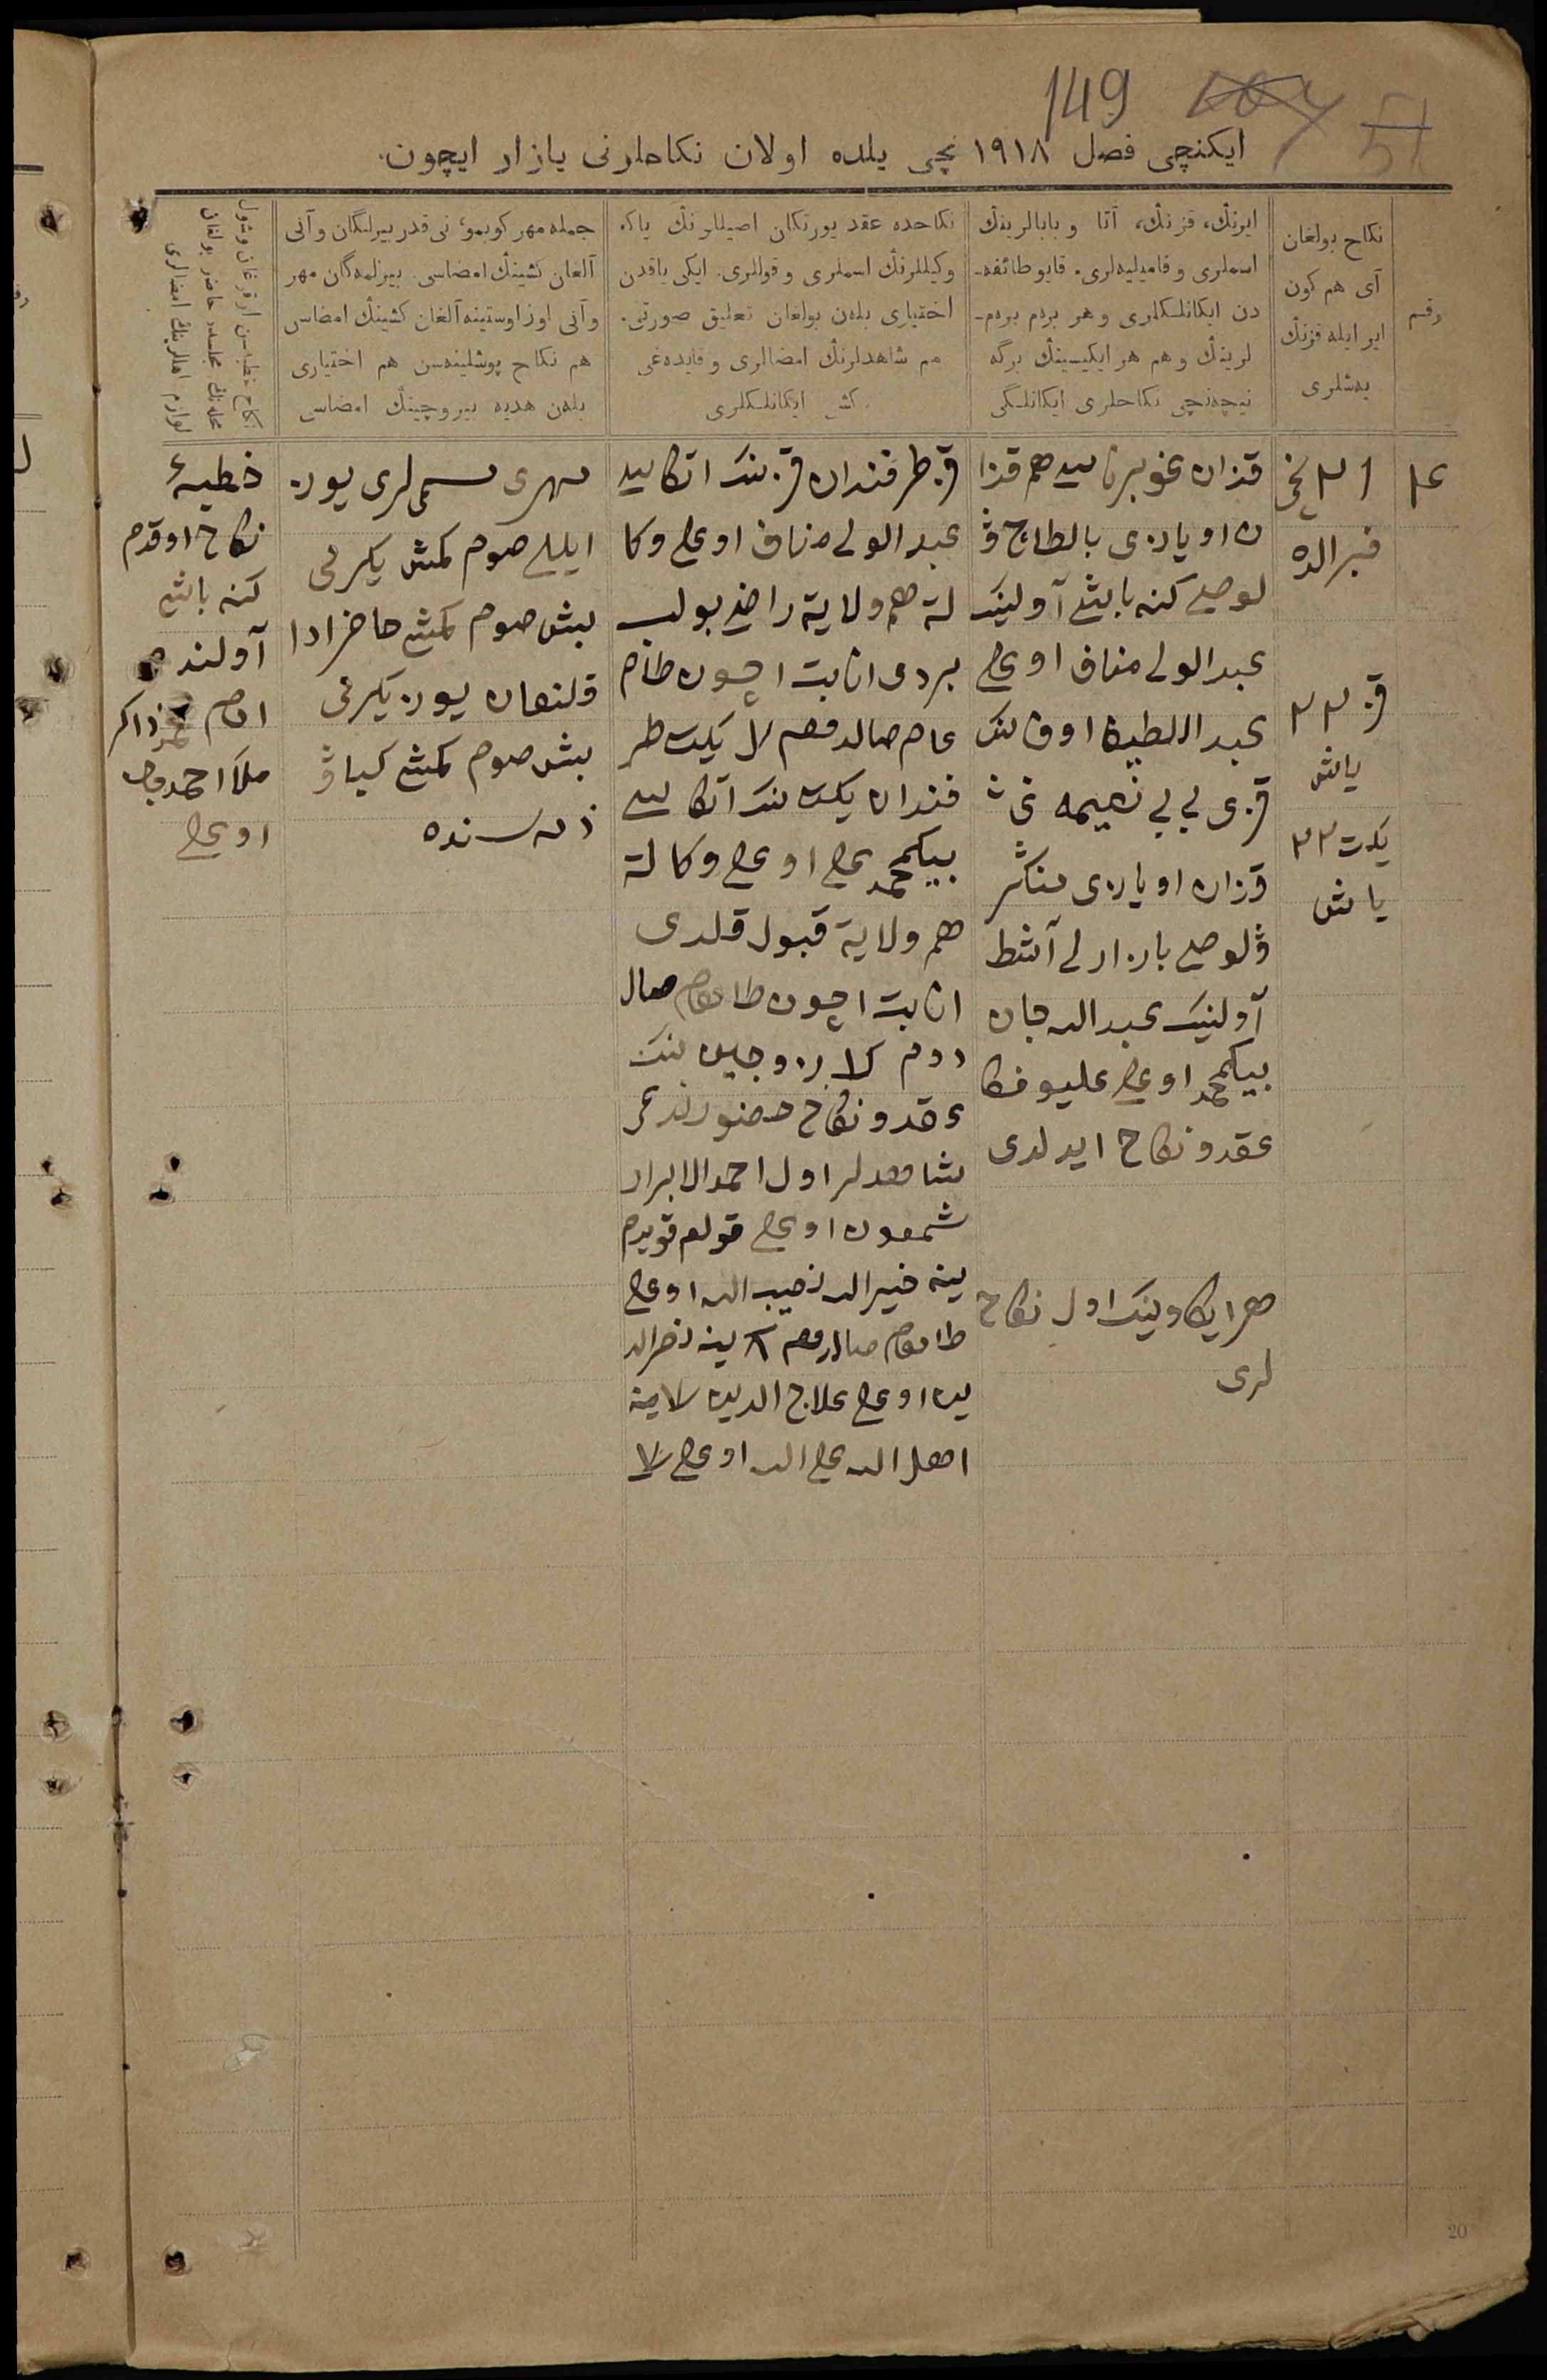 149
51
ایكنچی فصل ١٩١٨ نچی یلده اولان نكاحلرنی یازار ایچون.
رقم
نكاح بولغان
آی هم كون
ایر ایله قزنڭ
یەشلری
ایرنڭ، قزنڭ، آتا و بابالرینڭ
اسملری و فامیلیەلری. قایو طائفه‌ـ
دن ایكانلكلری و هر برەم برەم‌ـ
لرینڭ و هم هر ایكیسینڭ برگه
نیچەنچی نكاحلری ایكانلگی
نكاحده عقد یورتكان اصیللرنڭ یاكه
وكیللرنڭ اسملری و قوللری. ایكی یاقدن
اختیاری بلەن بولغان تعلیق صورتی.
هم شاهدلرنڭ امضالری و قایدەغی
كشی ایكانلكلری
جمله مهر كوبمو نی قدر بیرلگان و آنی
آلغان كشینڭ امضاسی. بیرلمەگان مهر
و آنی اوز اوستینه آلغان كشینڭ امضاسی
هم نكاح پوشلینەسن هم اختیاری
بلەن هدیه بیروچینڭ امضاسی
نكاح خطبەسن اوقوغان و شول
محلەنڭ مجلسده حاضر بولغان
لوازم اهللرینڭ امضالری
١٤
٣١ نچی
قز ٢٣
یاش
یكت ٢٣
یاش
قزان غوبرناسی هم قزا
ن اویازی بالطاچ ۋ
لوصی كنه باشی آولینڭ
عبدالولی مناف اوغلی
عبداللطیف اوف ننڭ
قزی بی بی نعیمه نی
قزان اویازی منگر
ۋلوصی بازارلی آشط
آولینڭ عبدالله جان
بیكمحمد اوغلی علیوفكا
عقد و نكاح ایدلدی
هر ایكاوینڭ اول نكاح
لری
قز طرفندان قزننڭ اتكاسی
عبدالولی مناف اوغلی وكا
لة هم ولایة راضی بولب
بردی اثابت اچون طام
غام صالدم یكت طر
فندان یكت ننڭ آتكاسی
بیكمحمد علی اوغلی وكالة
هم ولایة قبول قلدی
اثابت اچون طامغام صال
دوم زوجین ننڭ
عقد و نكاح حضورنده غی
شاهدلر اول احمد الابرار
شمعون اوغلی قولم قویدم
ینه خیرالله نصیب الله اوغلی
طامغام صالدم ینه نصرالد
ین اوغلی علاج الدین ینه
اهل الله علی الله اوغلی
مهری مسمی لری یوز
ایللی صوم كمش یكرمی
بش صوم كمش حاضر ادا
قلنغان یوز یكرمی
بش صوم كمش كیاۋ
ذمەسنده
خطبۀ
نكاح اوقدم
كنه باشی
آولنده
امام محمد ذاكر
ملا احمدجان
اوغلی
20